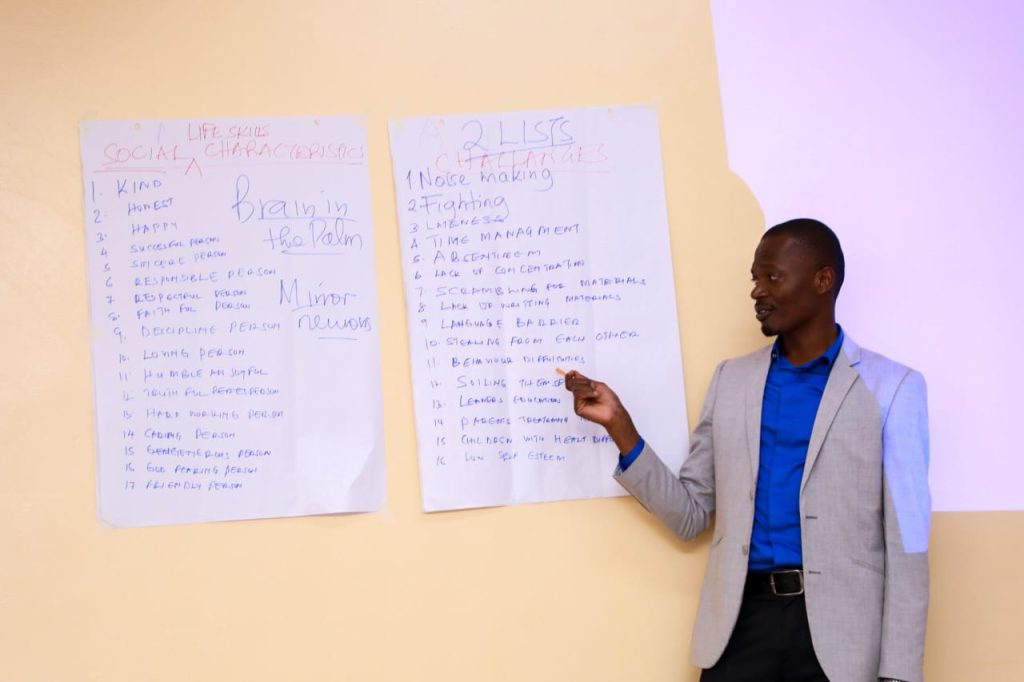 LIFE SKILLS
SOCIAL ^ CHARACTERISTICS
1. KIND
2. HONEST
3. HAPPY
4 SUCCESFUL PERSON
5 SINCERE PERSON
6 RESPONSIBLE PERSON
7 RESPECTFUL PERSON
8. FAITHFUL PERSON
9. DISCIPLINE PERSON
10. LOVING PERSON
11 HUMBLE AN JOYFUL
12 TRUTHFUL PERSON
13 HARD WORKING PERSON
14 CARING PERSON
15 PERSON
16 GOD FEARING PERSON
17 FRIENDLY PERSON
Brain in
the Palm
Mirror
neurons
2 LISTS
CHALLANGES
1. Noise making
2. Fighting
3. LATENESS
4. TIME MANAGMENT
5. ABSENTIEEM
6 LACK OF CONCENTRATION
7. SCRAMBLING FOR MATERIALS
8 LACK OF WRITING MATERIALS
9 LANGUAGE BARRIER
10. STEALING FROM EACH OTHER
11. BEHAVIOUR DIFFICULTIES
12. SOILING
13. LEANERS EDUCATION
14 PARENTS
15 CHILDREN WITH
16 LOW SELF ESTEEM